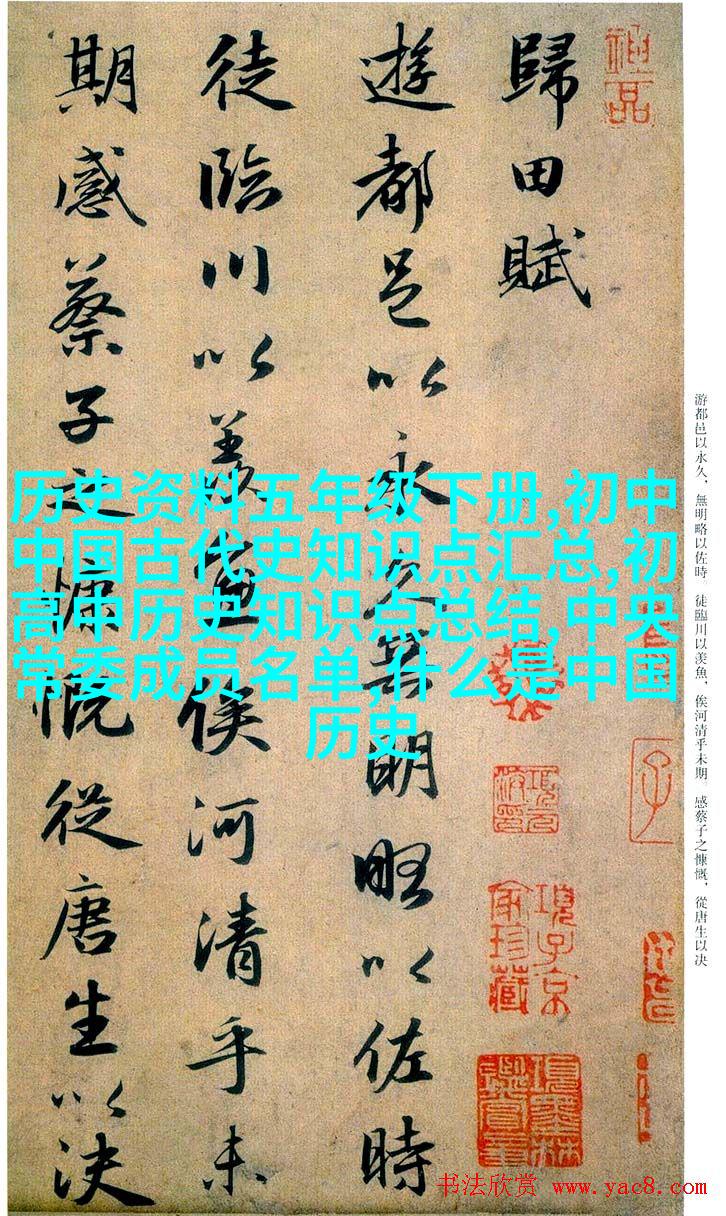 歸田賦
遊都邑以永久無明略以佐時
徒臨川以羨魚俟河清乎未
期感蔡子之慷慨從唐生以決
历史资料五年级下册,初中
中国古代史知识点汇总,初
高中历史知识点总结,中央
常委成员名单,什么是中国
历史
游都邑以永久,無明略以佐時 徒臨川以羨魚,俟河清乎未期。感蔡子之慷慨,從唐生以决
子
項子京
家珍藏
書法欣赏 www.yac8.com